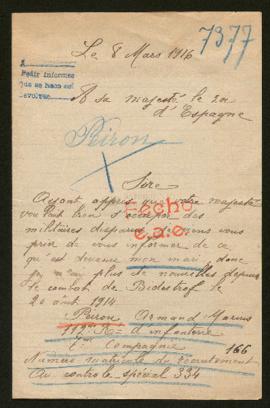 Le 8 Mars 1916
7377
Pedir informes
que se hacen así
A sa majesté le roi
d'Espagne
Peiron
Sire
Ayant appris que votre majesté
veut bien s'occuper des
militaires disparus je viens vous
prier de vous informer de ce
qu'est devenu mon mari, donc
je n'ai plus de nouvelles depuis
le combat de Bidestrof le
20 août 1914
Fecho
Peiron Armand Marius
R d'infanterie
Compagnie 166
Numéro matricule du recrutement
Au contrôle spécial 334